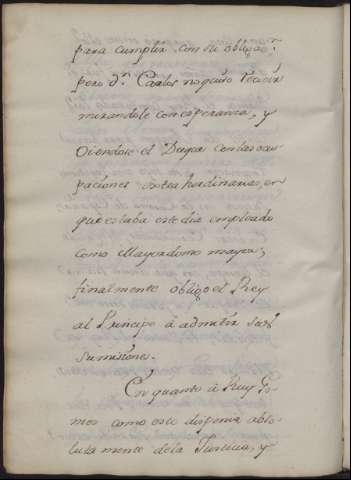 para cumplir con su obligaon.
pero dn. Carlos no quiso
mirandole con esperanza, y
el Duque con las ocu
paciones extrahordinarias, en
que estaba este dia empleado
como Mayordomo mayor,
finalmente obligo el Rey
al Principe à admitir sus
sumisiones.
En quanto à Ruy Go-
mes como este disponia abso-
lutamente de la Justicia, y